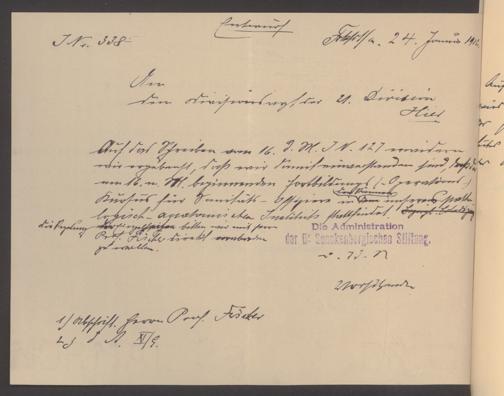 Entwurf
J Nr. 338
Ffm. 24. Januar 191
An
den Divisionsarzt der 21. Division
Hier
Auf das Schreiben vom 16. d. M. J N. 127 erwidern
wir ergebenst, daß wir damit einverstanden sind, daß
am beginnenden Fortbildungs- (Operations-)
Kursus für Sanitäts-Offiziere in unserem patho-
logisch-anatomischen Institut stattfindet
bitten wir mit Herrn
Prof. Fischer direkt
zu wollen.
Die Administration
der Dr. Senckenbergischen Stiftung.
Vorsitzender
1) Abschrift Herrn Prof. Fischer
2) z. d. A. XI/9.